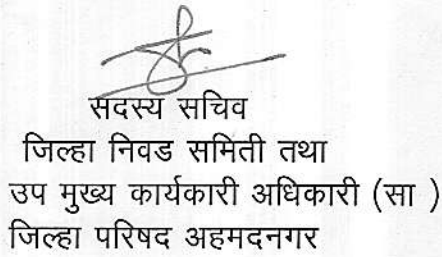 सदस्य सचिव
जिल्हा निवड समिती तथा
उप मुख्य कार्यकारी अधिकारी (सा )
जिल्हा परिषद अहमदनगर